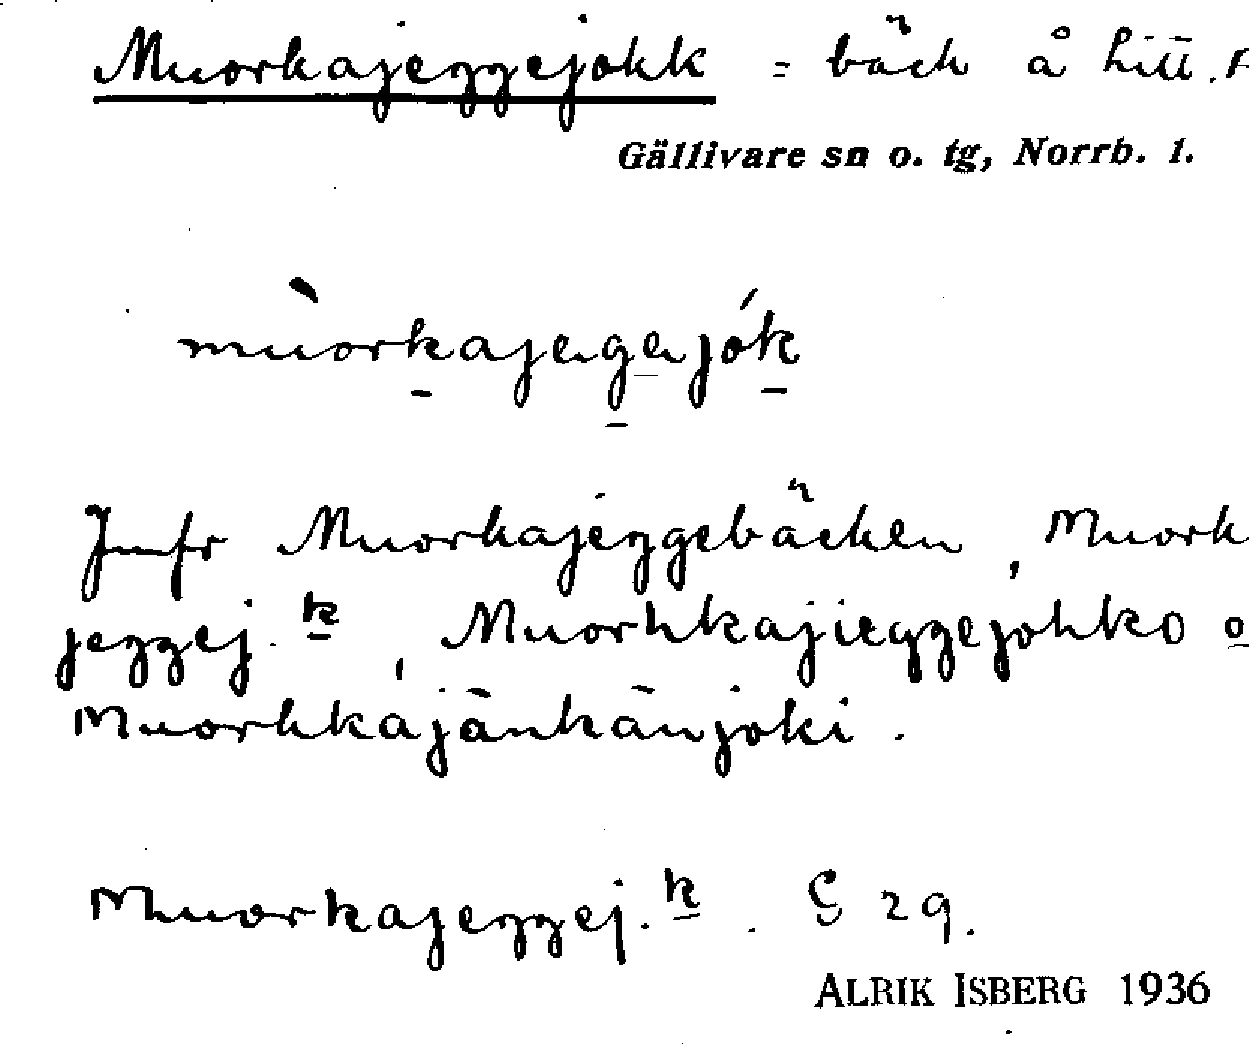 Muorkajeggejokk = bäck å hitt.
Gällivare sn o. tg, Norrb. l.
mùorkajegejók
Jmfr Muorkajeggebäcken, Muork
jeggej.k, Muorhkajieggejohko o
Muorhkajänkänjoki.
Muorkajeggej.k. S 29.
ALRIK ISBERG 1936